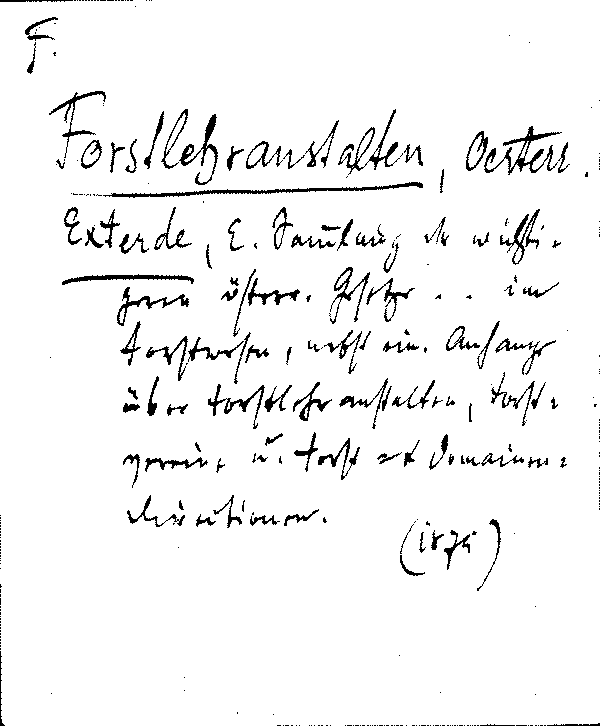 F.
Forstlehranstalten, Oesterr.
Exterde, E. Samlung der wichti-
geren österr. Gesetze . . im
Forstwesen, nebst ein. Anhange
über Forstlehranstalten, Forst-
vereine u. Forst- Domainen-
direktionen.
(1875)